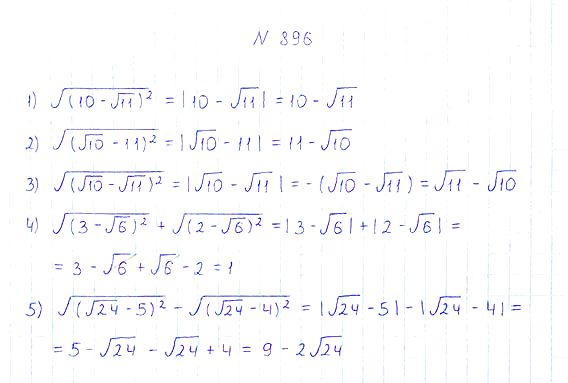 N 896
1) √(10 - √11)² = |10 - √11| = 10 - √11
2) √(√10 - 11)² = |√10 - 11| = 11 - √10
3) √(√10 - √11)² = |√10 - √11| = - (√10 - √11) = √11 - √10
4) √(3 - √6)² + √(2 - √6)² = |3 - √6| + |2 - √6| =
= 3 - √6 + √6 - 2 = 1
5) √(√24 - 5)² - √(√24 - 4)² = |√24 - 5| - |√24 - 4| =
= 5 - √24 - √24 + 4 = 9 - 2√24